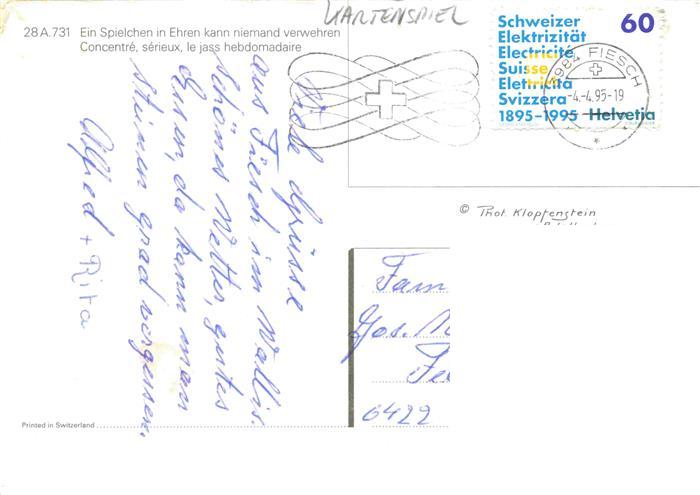 KARTENSPIEL
28 A.731 Ein Spielchen in Ehren kann niemand verwehren
Concentré, sérieux, le jass hebdomadaire
Schweizer 60
Elektrizität
Electricité
Suisse
Elettricità
Svizzera
1895-1995 Helvetia
3984 FIESCH
-4.-4.95-19
© Phot. Klopfenstein
Liebe Grüsse
aus Fiesch im Wallis.
Schönes Wetter, gutes
Essen, da kann man
Steinen grad vergessen.
Alfred + Rita
Fam
Jos. M
6422
Printed in Switzerland